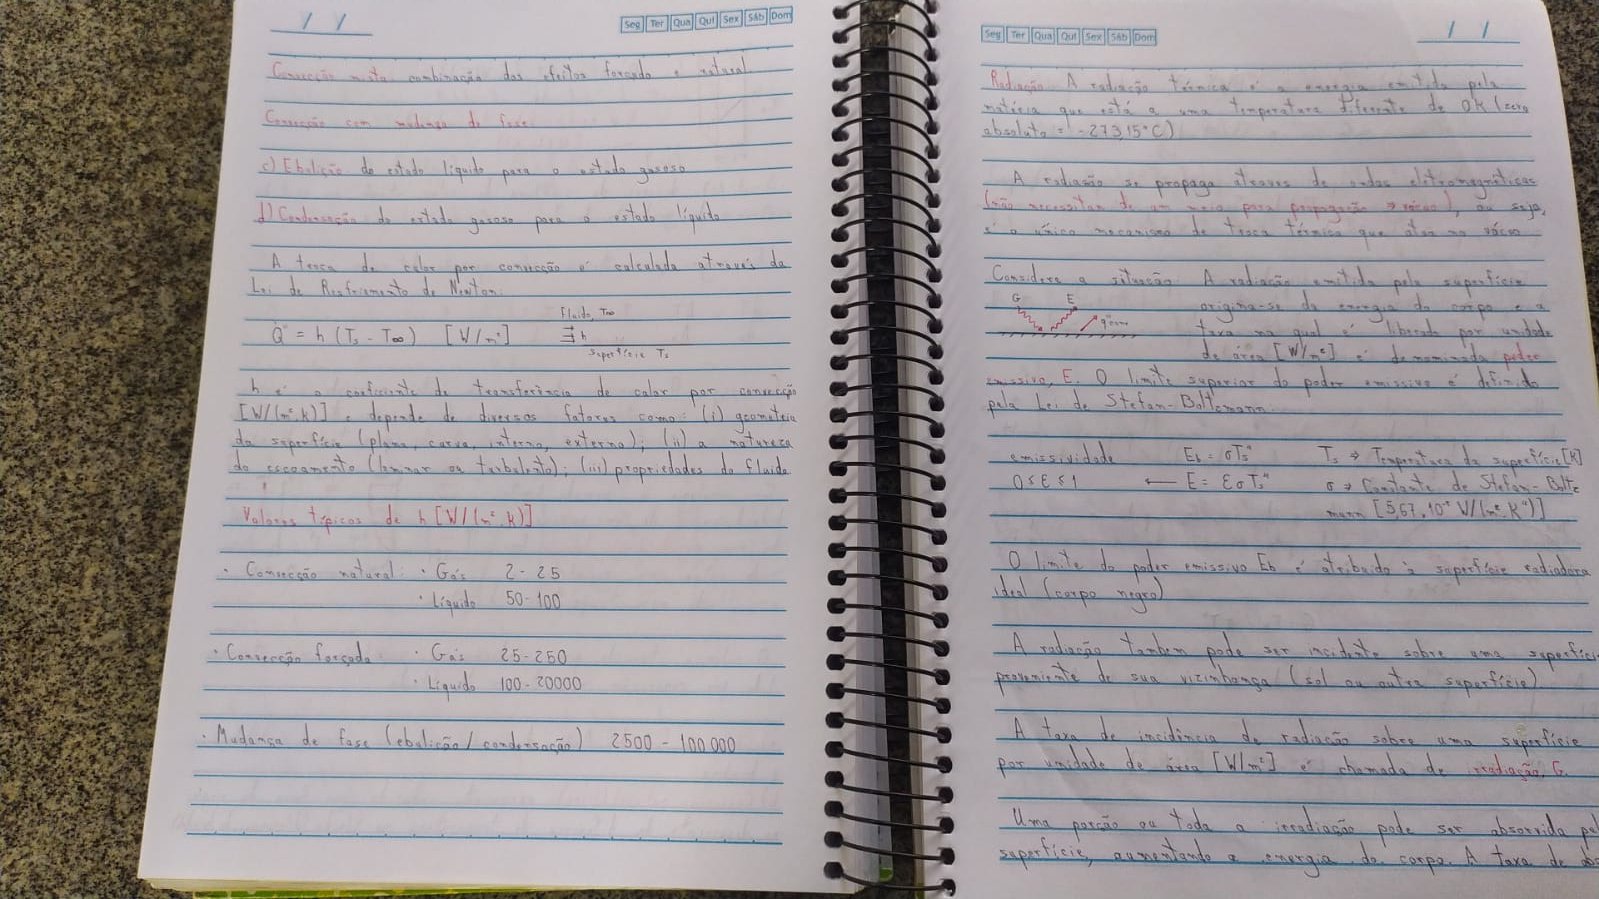 / /
Seg Ter Qua Qui Sex Sáb Dom
Convecção mista combinação dos efeitos forçado e natural
Convecção com mudança de fase
c) Ebulição do estado líquido para o estado gasoso
d) Condensação do estado gasoso para o estado líquido
A troca de calor por convecção é calculada através da
Lei de Resfriamento de Newton:
Q̇" = h (Ts - T∞) [W/m²]
Fluido, T∞
h
superfície Ts
h é o coeficiente de transferência de calor por convecção
[W/(m².K)] e depende de diversos fatores como: (i) geometria
da superfície (plana, curva, interna, externa); (ii) a natureza
do escoamento (laminar ou turbulento); (iii) propriedades do fluido
Valores típicos de h [W/(m².K)]
· Convecção natural: · Gás 2-25
· Líquido 50-100
· Convecção forçada · Gás 25-250
· Líquido 100-20000
· Mudança de fase (ebulição/condensação) 2500 - 100 000
Seg Ter Qua Qui Sex Sáb Dom
/ /
Radiação A radiação térmica é a energia emitida pela
matéria que está a uma temperatura diferente de 0K (zero
absoluto = -273,15°C)
A radiação se propaga através de ondas eletromagnéticas
(não necessitam de um meio para propagação → vácuo), ou seja,
é o único mecanismo de troca térmica que atua no vácuo
Considere a situação A radiação emitida pela superfície
G E
origina-se da energia do corpo e a
q"conv
taxa na qual é liberada por unidade
de área [W/m²] é denominada poder
emissivo, E. O limite superior do poder emissivo é definido
pela Lei de Stefan-Boltzmann.
emissividade Eb = σTs⁴ Ts → Temperatura da superfície [K]
0≤ε≤1 ← E = εσTs⁴ σ → Constante de Stefan-Boltz
mann [5,67.10⁻⁸ W/(m².K⁴)]
O limite do poder emissivo Eb é atribuido à superfície radiadora
ideal (corpo negro)
A radiação também pode ser incidente sobre uma superfíci
proveniente de sua vizinhança (sol ou outra superfície)
A taxa de incidência de radiação sobre uma superfície
por unidade de área [W/m²] é chamada de irradiação, G.
Uma porção ou toda a irradiação pode ser absorvida pel
superfície, aumentando a energia do corpo. A taxa de